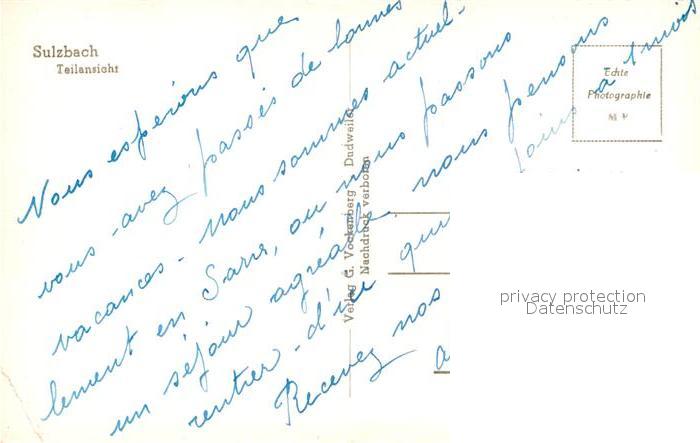 Sulzbach
Teilansicht
Echte
Photographie
M P
Verlag G. Vockenberg Dudweiler
Nachdruck verboten
Nous espérions que
vous avez passés de bonnes
vacances - Nous sommes actuel-
lement en Sarre, ou nous passons
un séjour agréable nous pensons
rentrer - d'ici qui
Recevez nos
a
privacy protection
Datenschutz